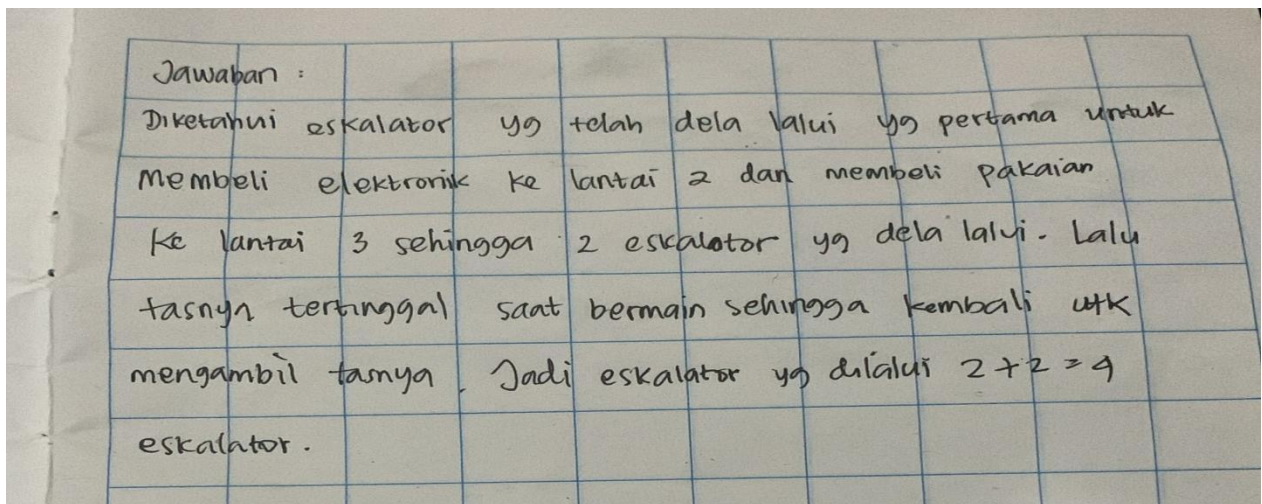 Jawaban :
Diketahui eskalator yg telah dela lalui yg pertama untuk
Membeli elektronik ke lantai 2 dan membeli pakaian
Ke lantai 3 sehingga 2 eskalator yg dela lalui. Lalu
tasnya tertinggal saat bermain sehingga kembali utk
mengambil tasnya. Jadi eskalator yg dilalui 2+2=4
eskalator.